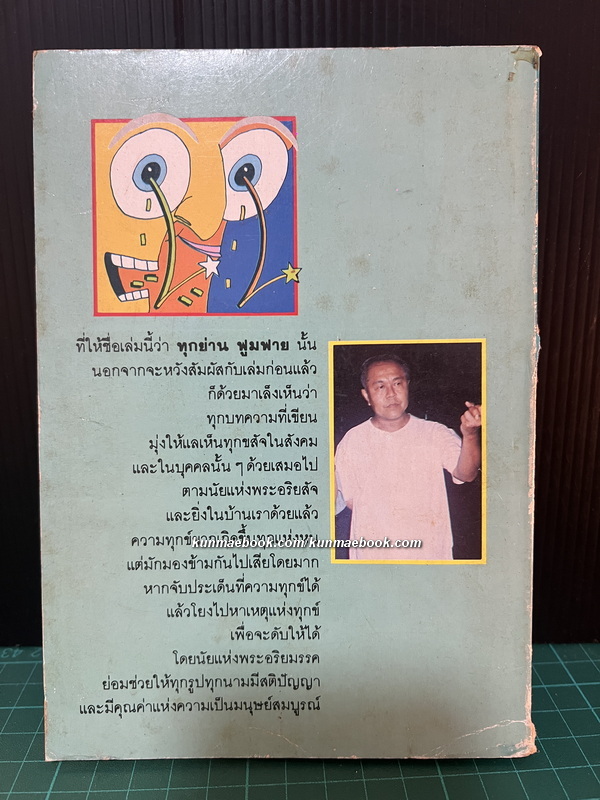 ที่ให้ชื่อเล่มนี้ว่า ทุกย่าน ฟูมฟาย นั้น
นอกจากจะหวังสัมผัสกับเล่มก่อนแล้ว
ก็ด้วยมาเล็งเห็นว่า
ทุกบทความที่เขียน
มุ่งให้แลเห็นทุกขสัจในสังคม
และในบุคคลนั้น ๆ ด้วยเสมอไป
ตามนัยแห่งพระอริยสัจ
และยิ่งในบ้านเราด้วยแล้ว
ความทุกข์ยากเกิดขึ้นทุกแห่งหน
kunmaebook.com/kunmaebook.com
แต่มักมองข้ามกันไปเสียโดยมาก
หากจับประเด็นที่ความทุกข์ได้
แล้วโยงไปหาเหตุแห่งทุกข์
เพื่อจะดับให้ได้
โดยนัยแห่งพระอริยมรรค
ย่อมช่วยให้ทุกรูปทุกนามมีสติปัญญา
และมีคุณค่าแห่งความเป็นมนุษย์สมบูรณ์